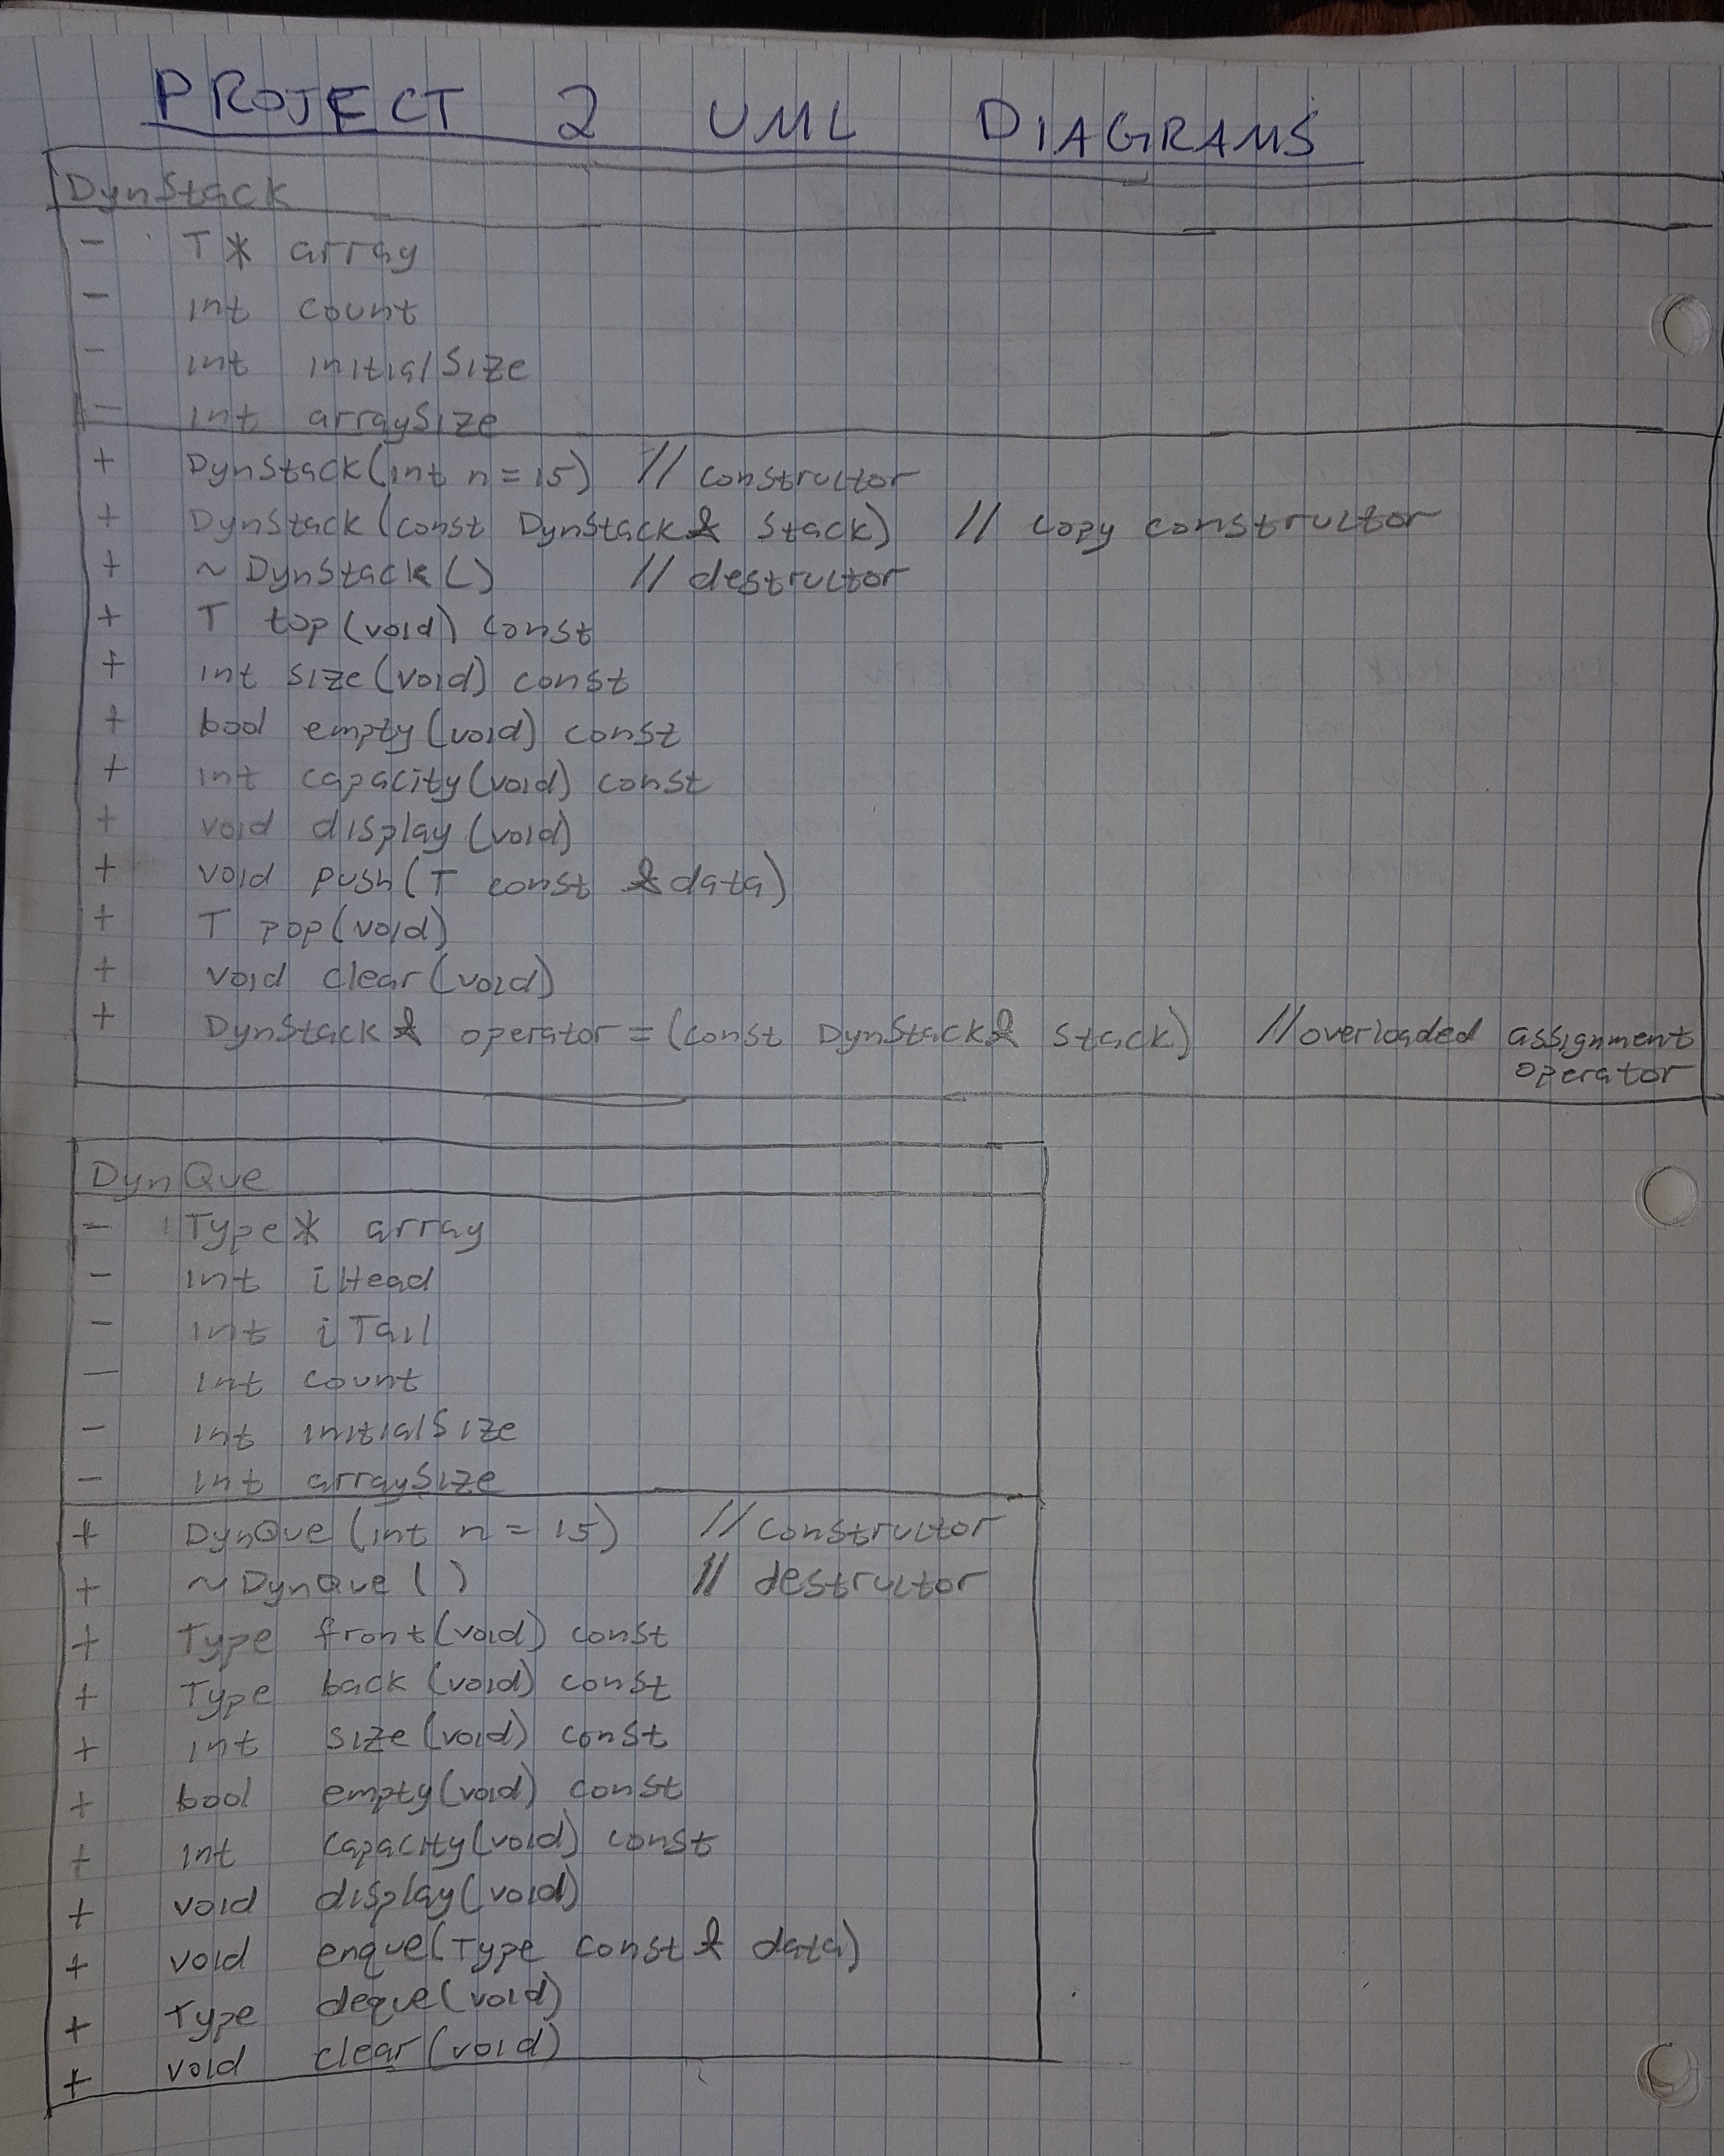 PROJECT 2 UML DIAGRAMS
DynStack
- T* array
- int count
- int initialSize
- int arraySize
+ DynStack(int n = 15) // constructor
+ DynStack(const DynStack& stack) // copy constructor
+ ~DynStack() // destructor
+ T top(void) const
+ int size(void) const
+ bool empty(void) const
+ int capacity(void) const
+ void display(void)
+ void push(T const &data)
+ T pop(void)
+ void clear(void)
+ DynStack& operator=(const DynStack& stack) //overloaded assignment
operator
DynQue
- Type* array
- int iHead
- int iTail
- int count
- int initialSize
- int arraySize
+ DynQue(int n = 15) // constructor
+ ~DynQue() // destructor
+ Type front(void) const
+ Type back(void) const
+ int size(void) const
+ bool empty(void) const
+ int capacity(void) const
+ void display(void)
+ void enque(Type const& data)
+ Type deque(void)
+ void clear(void)